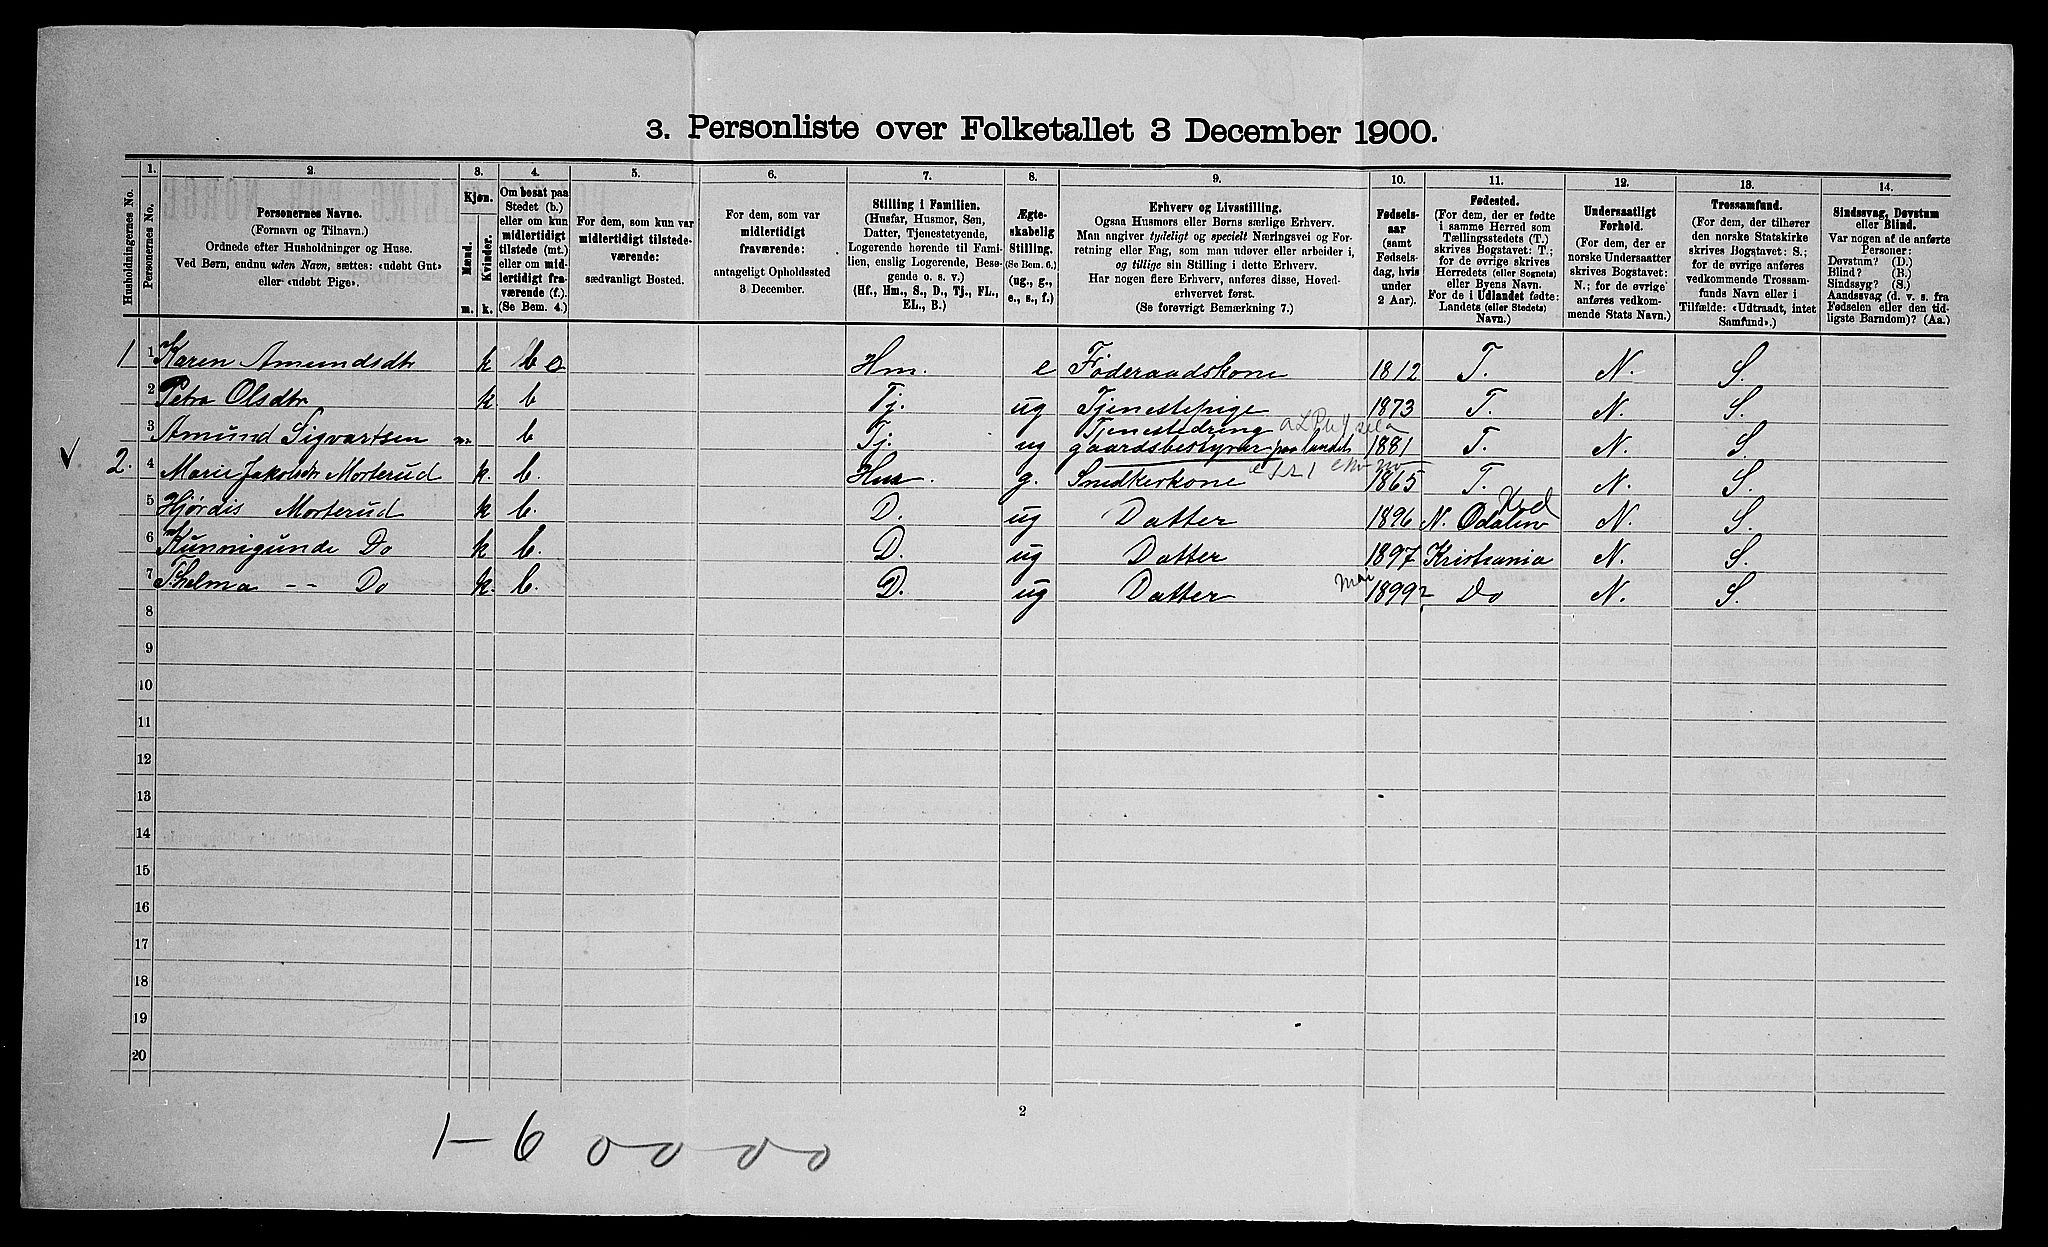 3. Personliste over Folketallet 3 December 1900.
Husholdningernes No.
1.
Personernes No.
2.
Personernes Navne.
(Fornavn og Tilnavn.)
Ordnede efter Husholdninger og Huse.
Ved Børn, endnu uden Navn, sættes: «udøbt Gut»
eller «udøbt Pige».
3.
Kjøn.
Mænd.
Kvinder.
m. k.
4.
Om bosat paa
Stedet (b.)
eller om kun
midlertidigt
tilstede (mt.)
eller om mid-
lertidigt fra-
værende (f.).
(Se Bem. 4.)
5.
For dem, som kun var
midlertidigt tilstede-
værende:
sædvanligt Bosted.
6.
For dem, som var
midlertidigt
fraværende:
antageligt Opholdssted
3 December.
7.
Stilling i Familien.
(Husfar, Husmor, Søn,
Datter, Tjenestetyende,
Logerende hørende til Fami-
lien, enslig Logerende, Besø-
gende o. s. v.)
(Hf., Hm., S., D., Tj., FL.,
EL., B.)
8.
Ægte-
skabelig
Stilling.
(Se Bem. 6.)
(ug., g.,
e., s., f.)
9.
Erhverv og Livsstilling.
Ogsaa Husmors eller Børns særlige Erhverv.
Man angiver tydeligt og specielt Næringsvei og For-
retning eller Fag, som man udøver eller arbeider i,
og tillige sin Stilling i dette Erhverv.
Har nogen flere Erhverv, anføres disse, Hoved-
erhvervet først.
(Se forøvrigt Bemærkning 7.)
10.
Fødsels-
aar
(samt
Fødsels-
dag, hvis
under
2 Aar).
11.
Fødested.
(For dem, der er fødte
i samme Herred som
Tællingsstedets (T.)
skrives Bogstavet: T.;
for de øvrige skrives
Herredets (eller Sognets)
eller Byens Navn.
For de i Udlandet fødte:
Landets (eller Stedets)
Navn.)
12.
Undersaatligt
Forhold.
(For dem, der er
norske Undersaatter
skrives Bogstavet:
N.; for de øvrige
anføres vedkom-
mende Stats Navn.)
13.
Trossamfund.
(For dem, der tilhører
den norske Statskirke
skrives Bogstavet: S.;
for de øvrige anføres
vedkommende Trossam-
funds Navn eller i
Tilfælde: «Udtraadt, intet
Samfund».)
14.
Sindssvag, Døvstum
eller Blind.
Var nogen af de anførte
Personer:
Døvstum? (D.)
Blind? (B.)
Sindssyg? (S.)
Aandssvag (d. v. s. fra
Fødselen eller den tid-
ligste Barndom)? (Aa.)
1 1 Karen Amundsdtr k b o Hm. e Føderaadskone 1812 T. N. S.
2 Petra Olsdtr k b Tj. ug Tjenestepige 1873 T. N. S.
3 Amund Sigvartsen m. b Tj. ug Tjenestedreng
gaardsbestyrer paa landet 1881 T. N. S.
2. 4 Marie Jakobsdtr Morterud k. b. Hm. g. Snedkerkone 1865 T. N. S.
5 Hjørdis Morterud k b. D. ug Datter 1896 N. Odalen Hed N. S.
6 Kunnigunde Do k b. D. ug Datter 1897 Kristiania N. S.
7 Thelma -- Do k. b. D. ug Datter Mai 1899 Do N. S.
8
9
10
11
12
13
14
15
16
17
18
19
20
2
1-6 0 0 0 0